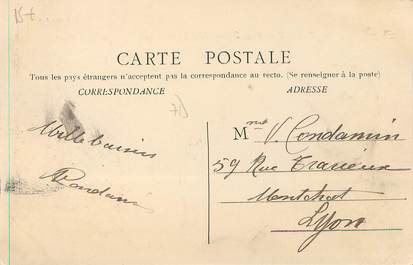 CARTE POSTALE
Tous les pays étrangers n'acceptent pas la correspondance au recto. (Se renseigner à la poste)
CORRESPONDANCE
ADRESSE
Mme V. Condamin
59 Rue
Montchat
Lyon
Mille baisers